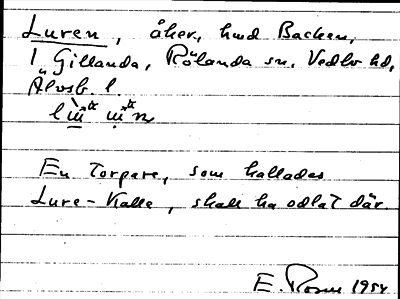 Luren, åker, hmd Backen,
1 Gillanda, Rölanda sn. Vedbo hd,
Älvsb. l.
En torpare, som kallades
Lure-Kalle, skall ha odlat där
E. Rosen 1954